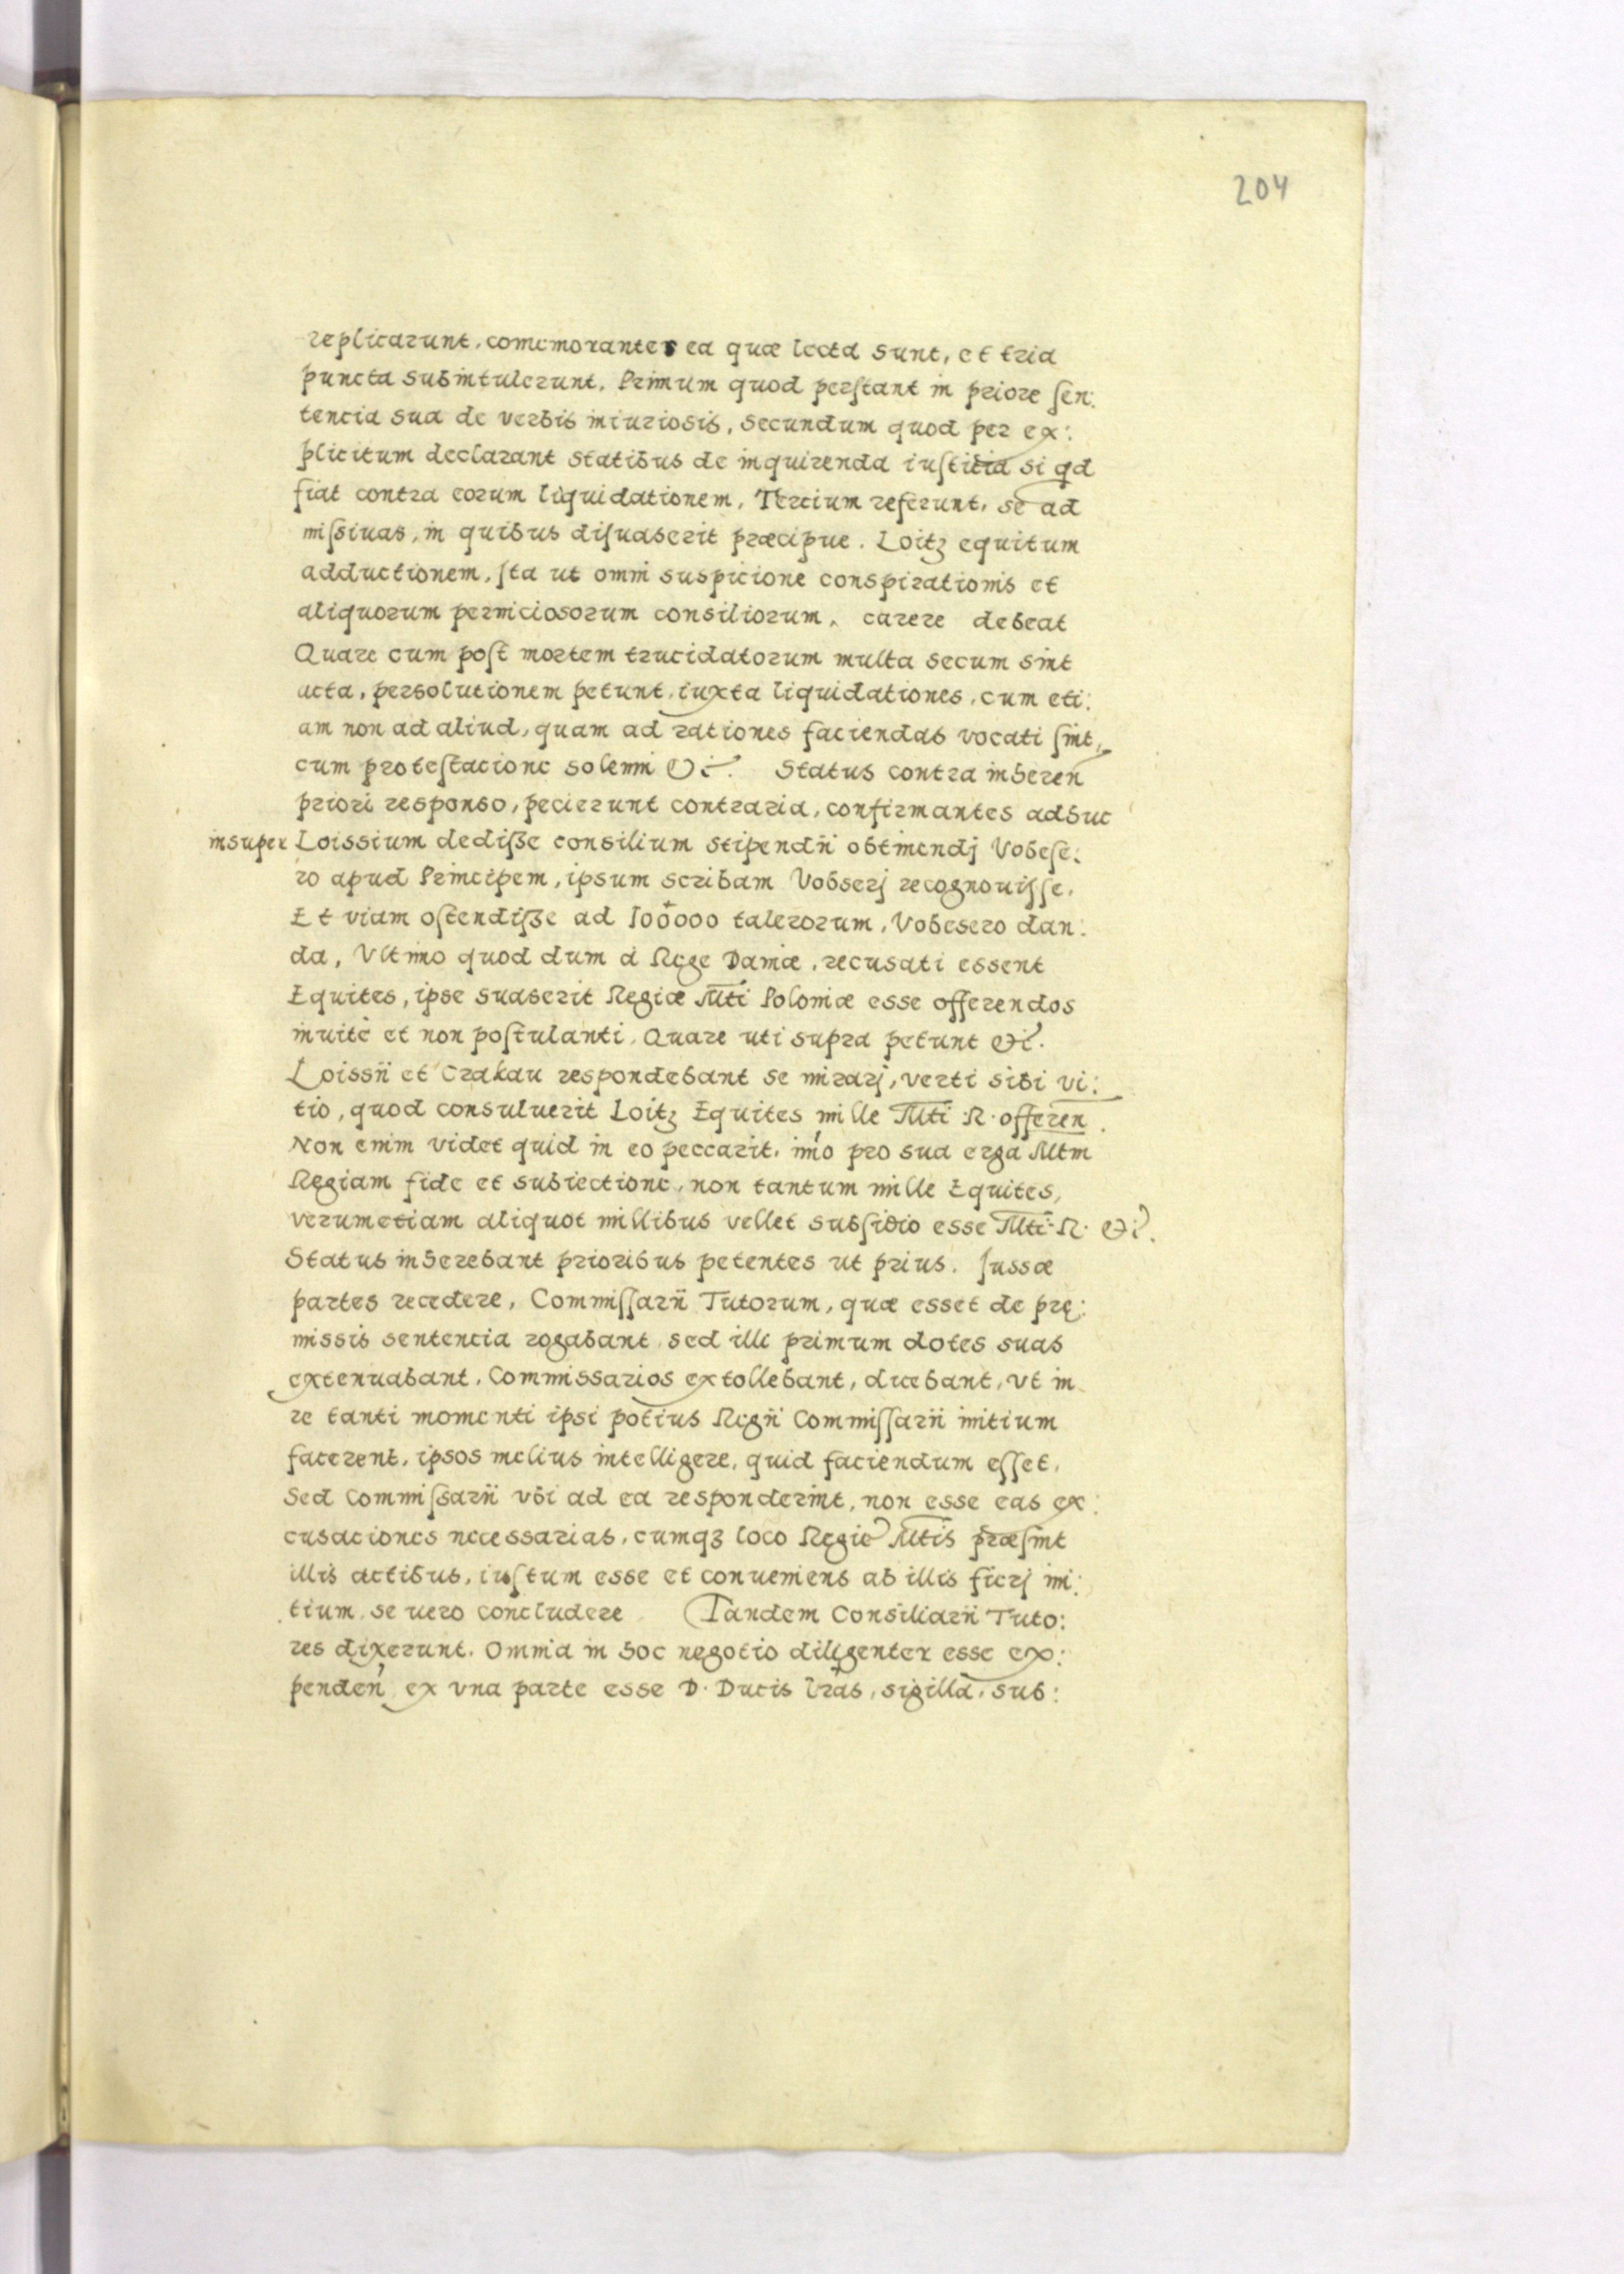 204
replicarunt, comemorantes ea quæ lecta sunt, et tria
puncta subintulerunt. Primum quod perſtant in priore ſen:
tencia sua de verbis iniuriosis, secundum quod per ex:
plicitum declarant statibus de inquirenda iuſticia si qd
fiat contra eorum liquidationem, Tercium referunt, se ad
miſsiuas, in quibus diſuaserit præcipue. Loitz equitum
adductionem, Ita ut omni suspicione conspirationis et
aliquorum perniciosorum consiliorum, carere debeat
Quare cum poſt mortem trucidatorum multa secum sint
acta, persolutionem petunt, iuxta liquidationes, cum eti:
am non ad aliud, quam ad rationes faciendas vocati ſint,
cum proteſtacione solenni &c. Status contra inheren
priori responso, pecierunt contraria, confirmantes adhuc
insuper Loissium dediſse consilium stipendii obtinendj Vobeſe:
ro apud Principem, ipsum scribam Vobserj recognouiſse,
Et viam oſtendiſse ad 100000 talerorum, Vobesero dan:
da, Vltimo quod dum à Rege Daniæ, recusati essent
Equites, ipse suaserit Regiæ Mti Poloniæ esse offerendos
inuitè et non poſtulanti, Quare uti supra petunt &c.
Loissii et Crakau respondebant se mirarj, verti sibi vi:
tio, quod consuluerit Loitz Equites mille Mti R. offeren.
Non enim videt quid in eo peccarit, imo pro sua erga Mtm
Regiam fide et subiectione, non tantum mille Equites,
verumetiam aliquot millibus vellet subſidio esse Mti R. &c.
Status inherebant prioribus petentes ut prius. Jussæ
partes recedere, Commiſſarii Tutorum, quæ esset de pre:
missis sentencia rogabant, sed illi primum dotes suas
extenuabant, Commissarios extollebant, dicebant, vt in
re tanti momenti ipsi potius Regii Commiſſarii initium
facerent, ipsos melius intelligere, quid faciendum eſſet,
Sed Commiſsarii vbi ad ea responderint, non esse eas ex:
cusaciones necessarias, cumqz loco Regie Mtis præſint
illis actibus, iuſtum esse et conueniens ab illis fierj ini:
tium, se uero concludere Tandem Consiliarii Tuto:
res dixerunt. Omnia in hoc negotio diligenter esse ex:
penden ex vna parte esse D. Ducis lras, sigilla, sub: